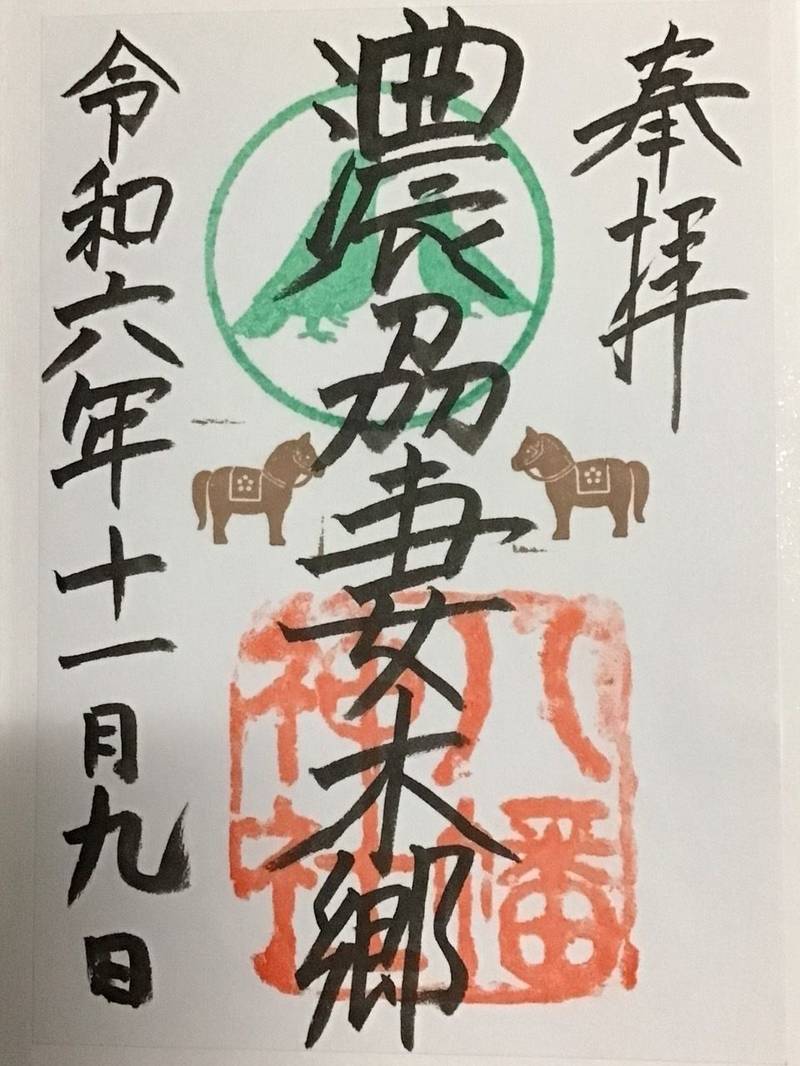 奉拝
濃刕妻木郷
八幡
神社
令和六年十一月九日